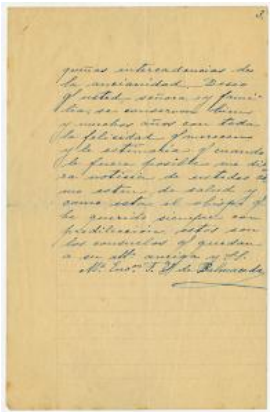 3.
queñas intercadencias de
la ancianidad. Deseo
q! usted, señora y fami-
lia, se conserven bien
y muchos años con toda
la felicidad q! merecen
y le estimaria q! cuando
le fuera posible me di-
era noticia de ustedes có-
mo estan de salud y
como esta el chispo q!
he querido siempre con
predilección, estos son
los consuelos q! quedan
a su affª. amiga y S.S.
Mª. Enc.ⁿ F. de